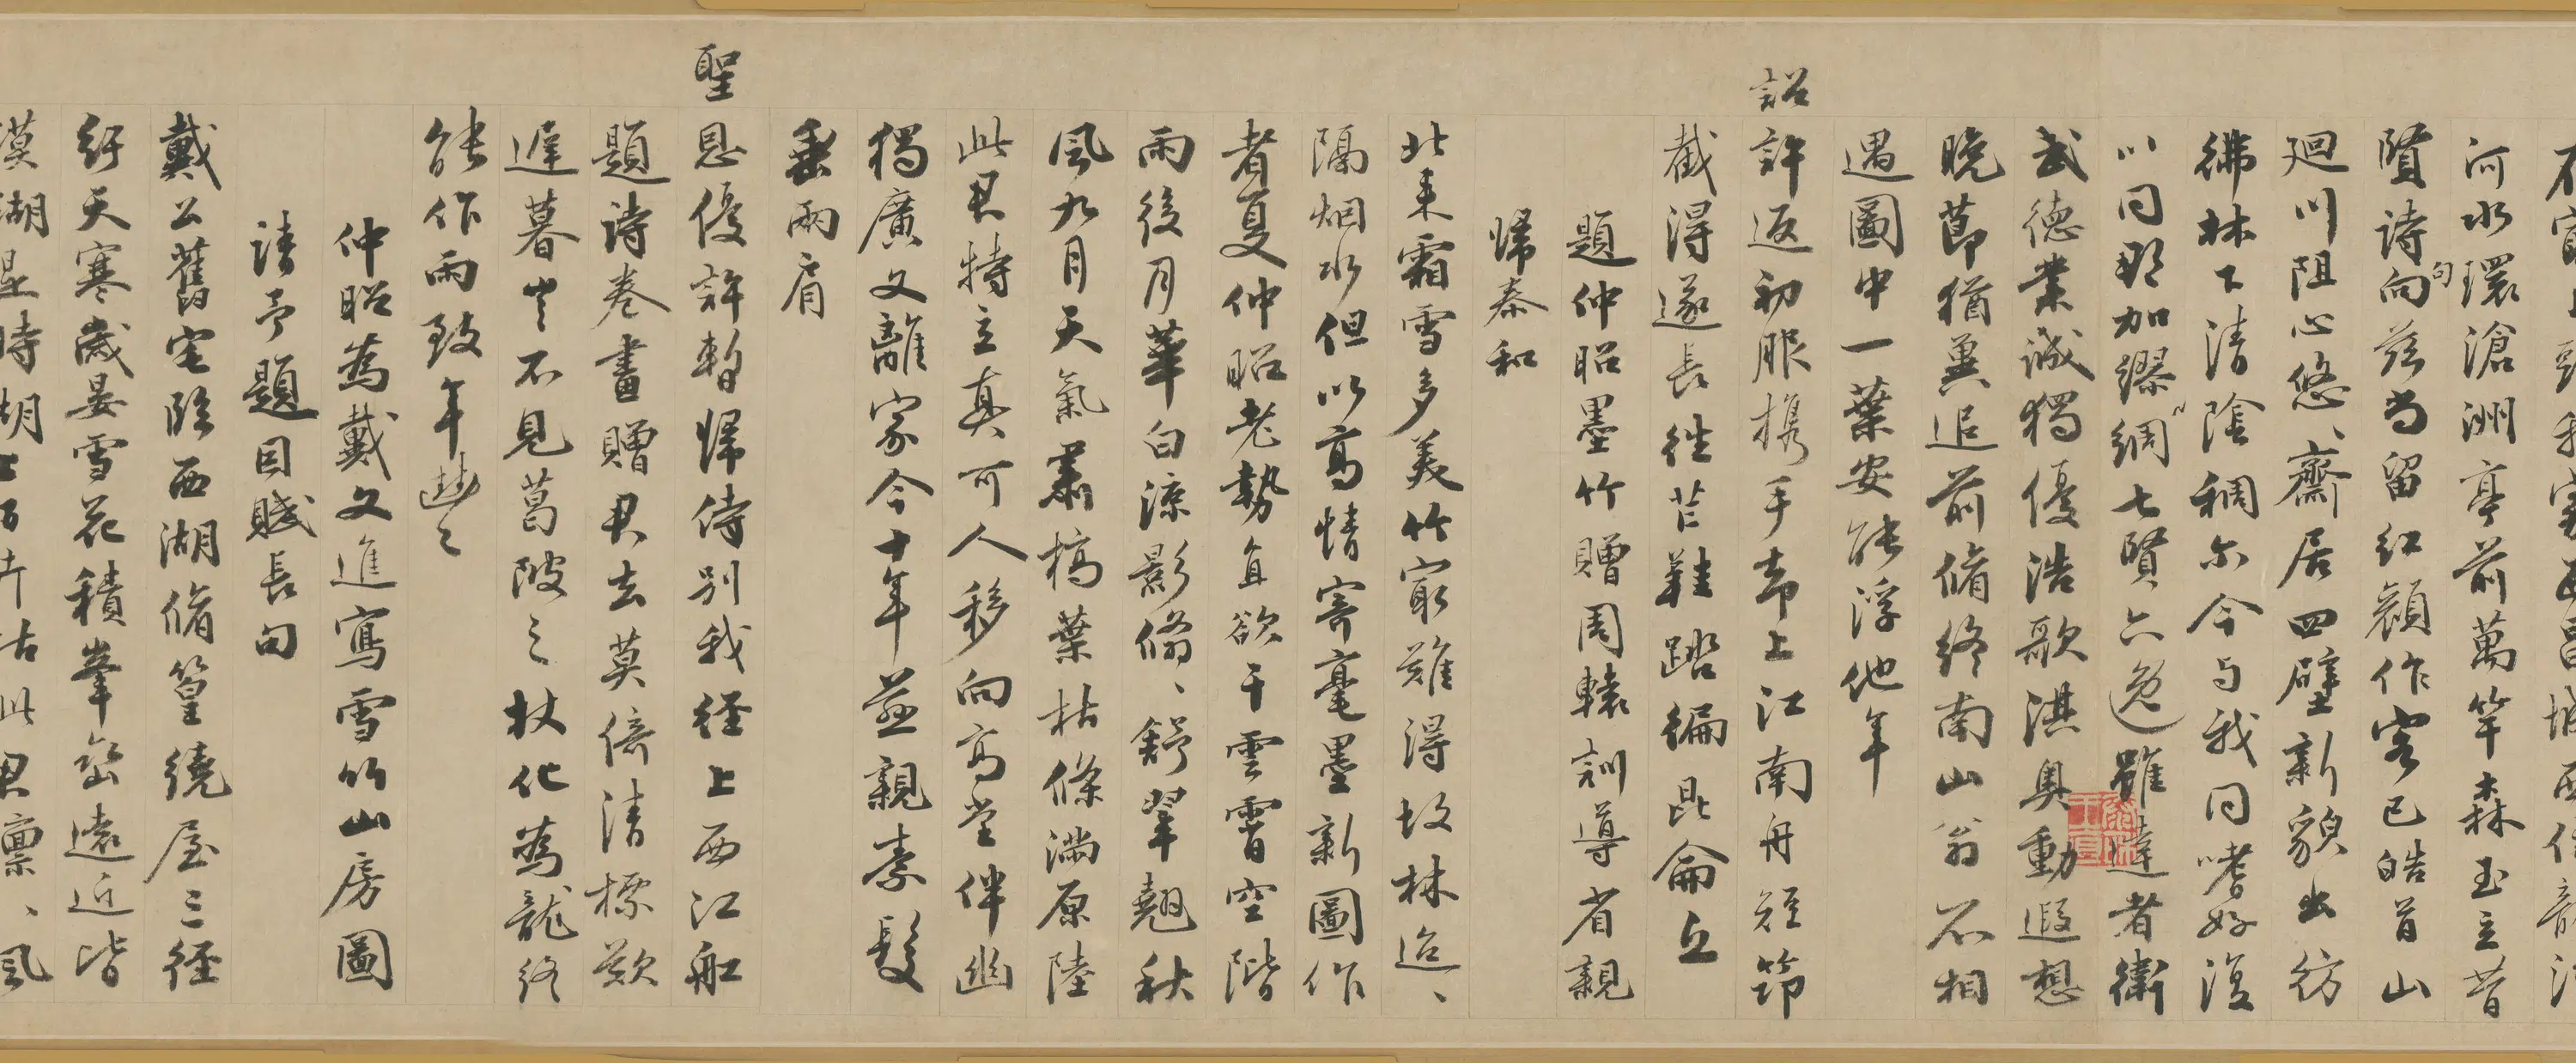 河水環滄洲亭前萬竿森玉立昔
賢詩句向茲尚留紅顏作客已皓首山
迴川阻心悠、齋居四壁新貌出彷
彿林下清陰稠尔今与我同嗜好復
以同那加繆綢七賢六逸雖達者衛
武德業誠獨優浩歌淇奧動遐想
晚節猶冀追前脩終南山翁不相
遇圖中一葉安能浮他年
詔許返初服携手却上江南舟短筇
截得遂長往芒鞋踏徧崑崙丘
題仲昭墨竹贈周轅訓導省親
歸泰和
北来霜雪多美竹寂難得故林迢、
隔烟水但以高情寄毫墨新圖作
者夏仲昭老勢直欲干雲霄空階
雨後月華白涼影翛、舒翠翹秋
風九月天氣肅槁葉枯條滿原陸
此君特立真可人移向高堂伴幽
獨廣文離家今十年益親素髮
垂兩肩
聖恩優許暫歸侍別我徑上西江船
題詩卷畫贈君去莫倚清標歎
遲暮君不見葛陂之杖化為龍終
能作雨致年豊
仲昭為戴文進寫雪竹山房圖
請予題因賦長句
戴公舊宅臨西湖脩篁繞屋三徑
紆天寒歲晏雪花積峯巒遠近皆
湖是時湖上百卉枯此君凛、風